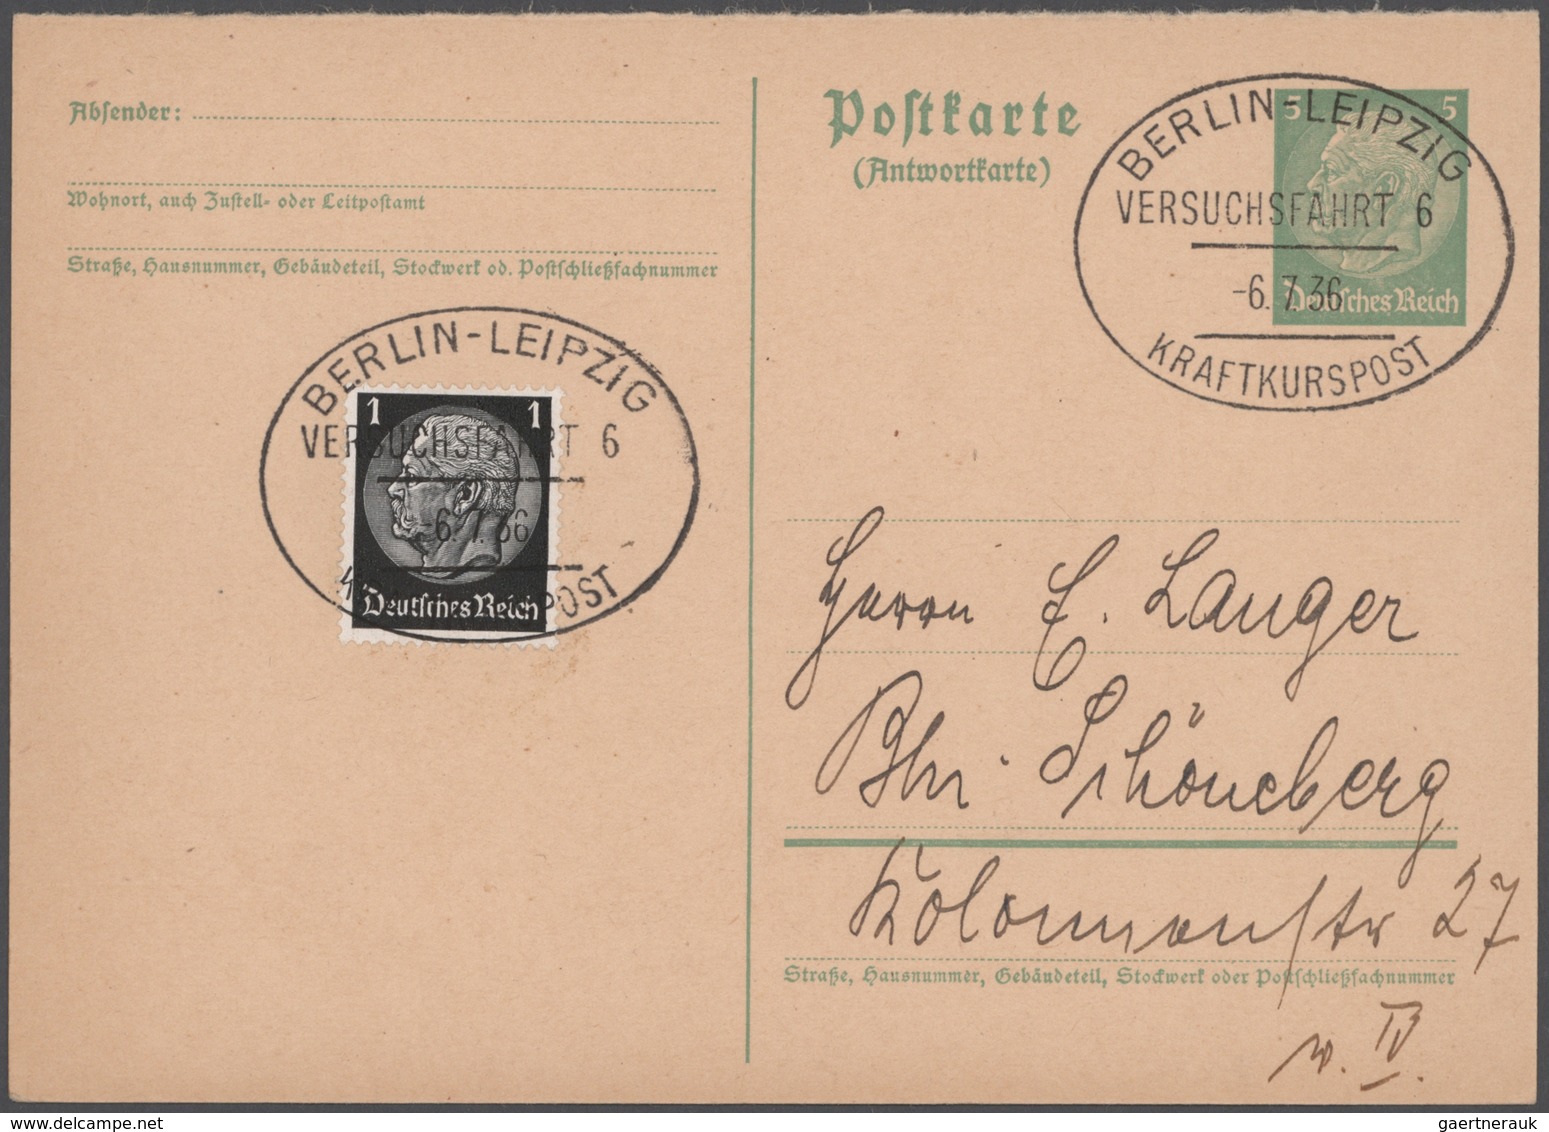 Absender:
Wohnort, auch Zustell- oder Leitpostamt
Straße, Hausnummer, Gebäudeteil, Stockwerk od. Postschließfachnummer
BERLIN-LEIPZIG
1 1
VERSUCHSFAHRT 6
-6.7.36
Deutsches Reich
POST
Postkarte
(Antwortkarte)
5 5
BERLIN-LEIPZIG
VERSUCHSFAHRT 6
-6.7.36
Deutsches Reich
KRAFTKURSPOST
Herrn E. Langer
Bln. Schöneberg
Straße, Hausnummer, Gebäudeteil, Stockwerk oder Postschließfachnummer
27
IV
delcampe.net
gaertnerauk